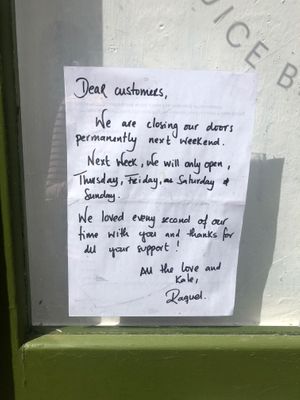 ICE B
Dear customers,
We are closing our doors
permanently next weekend.
Next week, we will only open,
Thursday, Friday, Saturday &
Sunday.
We loved every second of our
time with you and thanks for
all your support!
All the love and
Kale,
Raquel.